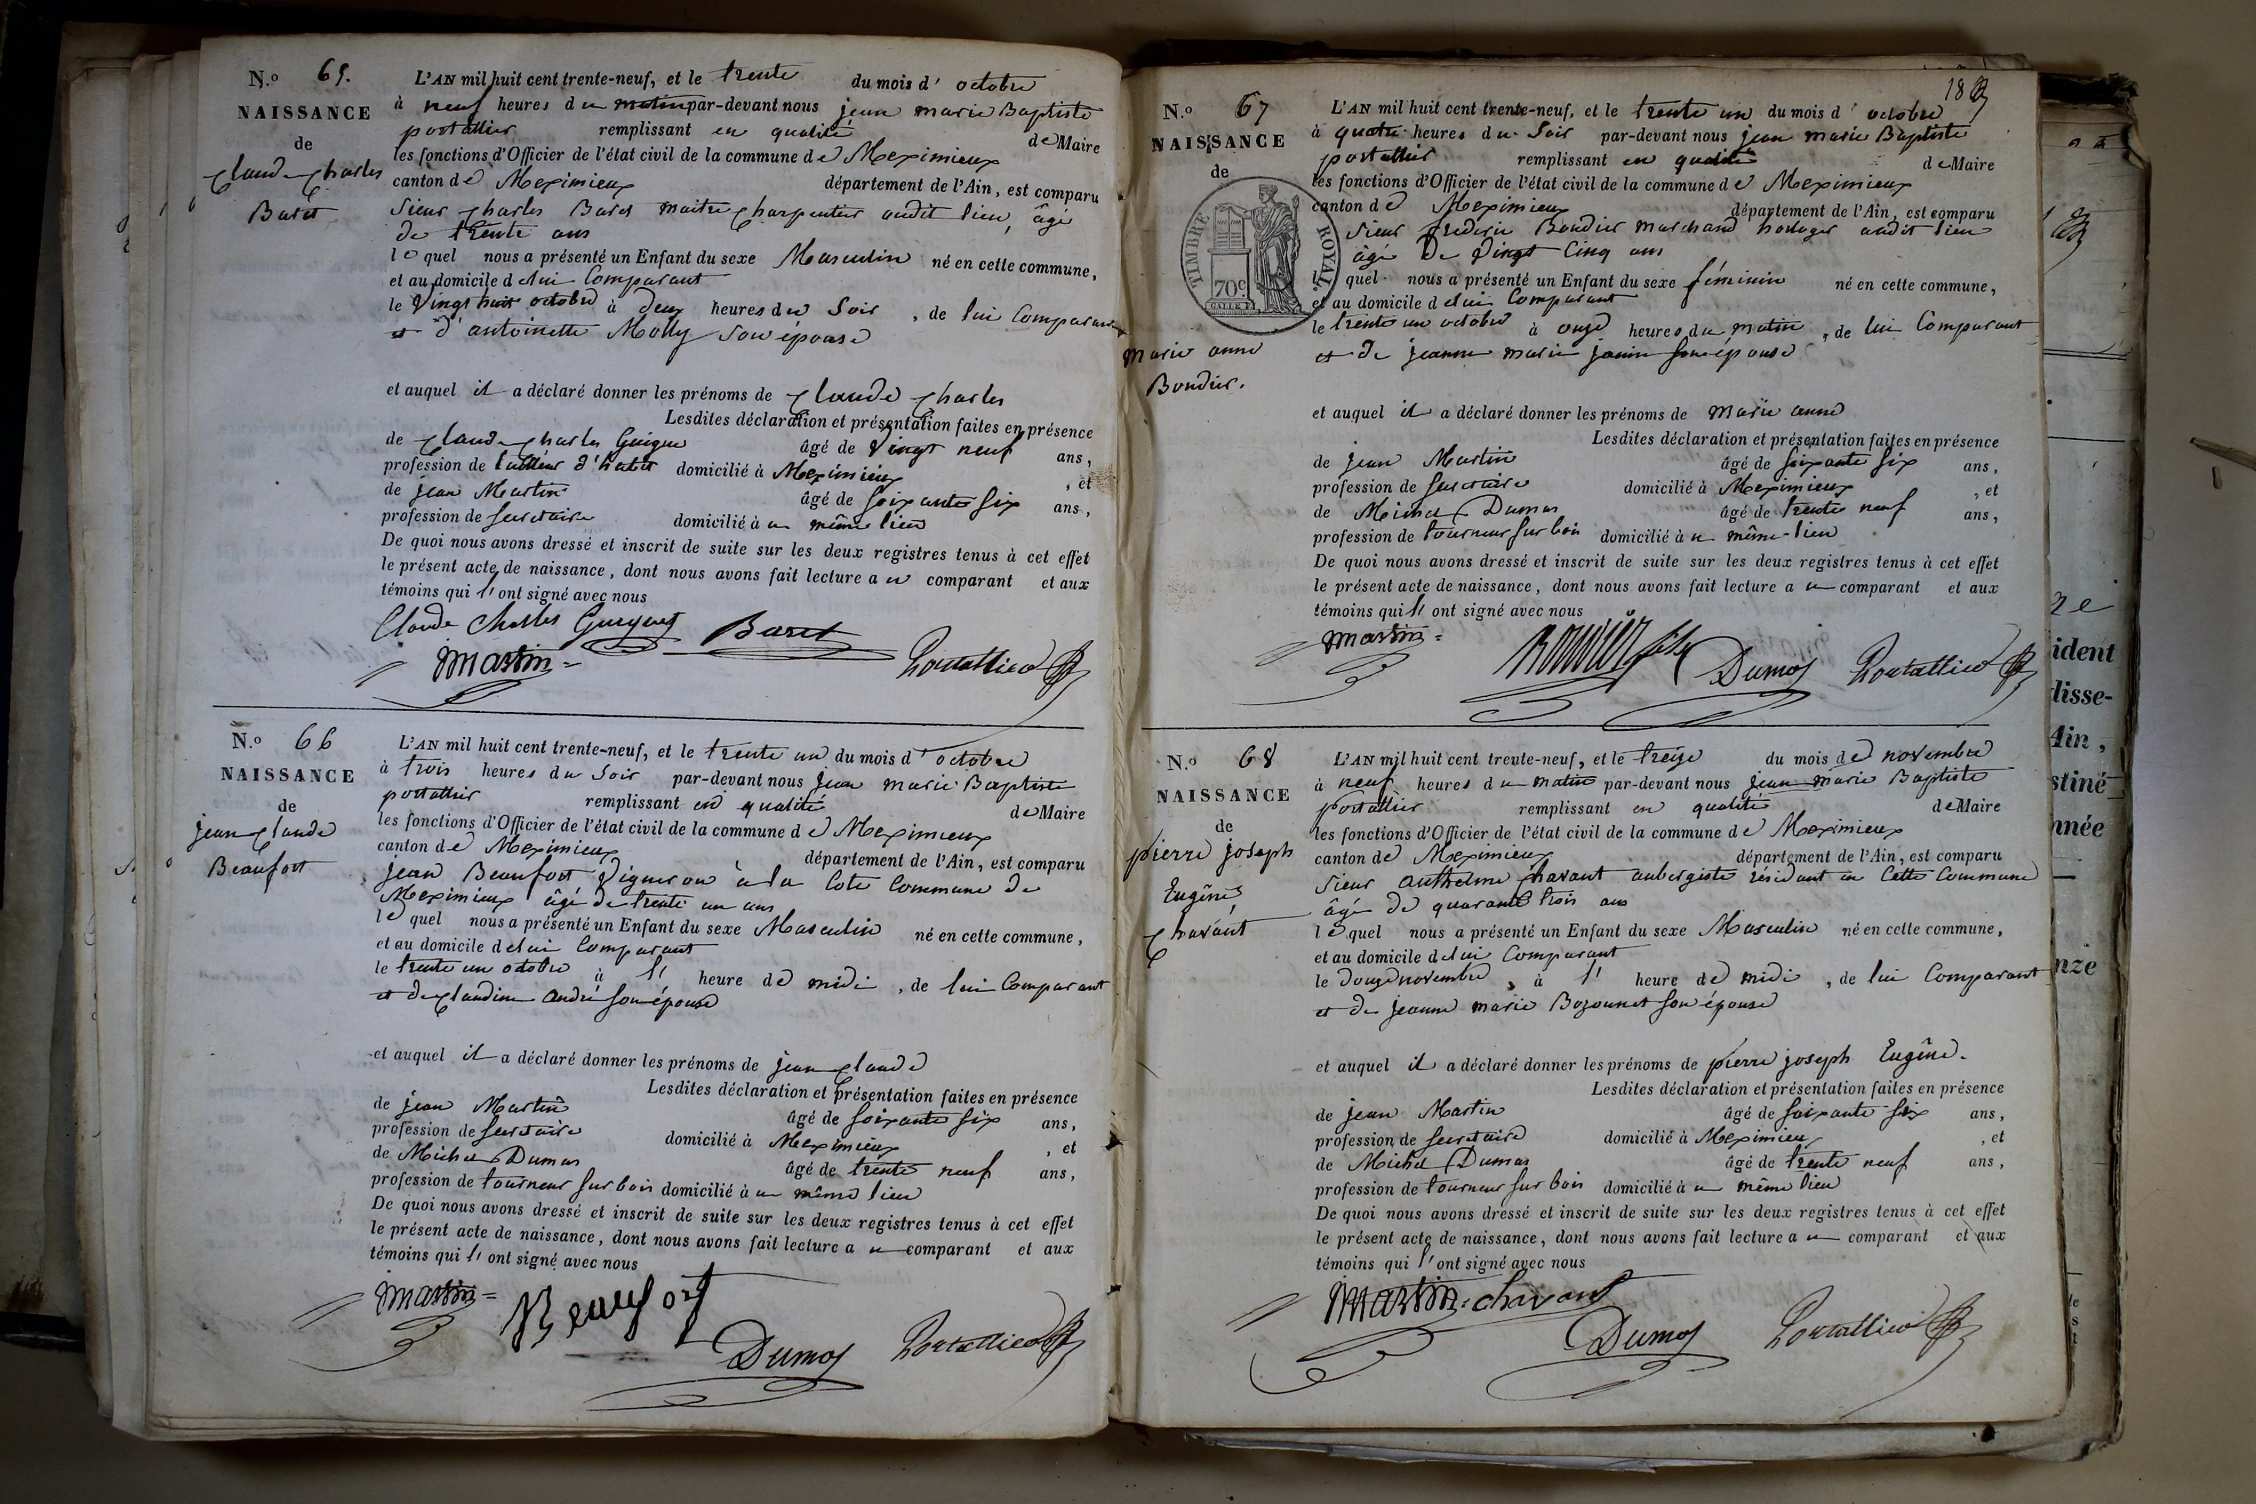 N.o 65.
NAISSANCE
de
Claude Charles
Baret
L'AN mil huit cent trente-neuf, et le trente du mois d' octobre
à neuf heures du matin par-devant nous jean marie Baptiste
portallier remplissant en qualité de Maire
les fonctions d'Officier de l'état civil de la commune de Meximieux
canton de Meximieux département de l'Ain, est comparu
Sieur Charles Baret maitre Charpentier audit lieu, âgé
de trente ans
lequel nous a présenté un Enfant du sexe Masculin né en cette commune,
et au domicile de lui Comparant
le Vingt huit octobre à deux heures du Soir, de lui Comparant
et d'antoinette Molly son épouse
et auquel il a déclaré donner les prénoms de Claude Charles
Lesdites déclaration et présentation faites en présence
de Claude Charles Guigue âgé de Vingt neuf ans,
profession de tailleur d'habits domicilié à Meximieux, et
de jean Martin âgé de Soixante Six ans,
profession de Secretaire domicilié à u même lieu
De quoi nous avons dressé et inscrit de suite sur les deux registres tenus à cet effet
le présent acte de naissance, dont nous avons fait lecture a u comparant et aux
témoins qui l' ont signé avec nous
Claude Charles Baret
martin Portallier
N.o 66
NAISSANCE
de
jean Claude
Beaufort
L'AN mil huit cent trente-neuf, et le trente un du mois d' octobre
à trois heures du Soir par-devant nous jean marie Baptiste
portallier remplissant en qualité de Maire
les fonctions d'Officier de l'état civil de la commune de Meximieux
canton de Meximieux département de l'Ain, est comparu
jean Beaufort Vigneron à la Cote Commune de
Meximieux âgé de trente un ans
lequel nous a présenté un Enfant du sexe Masculin né en cette commune,
et au domicile de lui Comparant
le trente un octobre à l' heure de midi, de lui Comparant
et de Claudine andré son épouse
et auquel il a déclaré donner les prénoms de jean Claude
Lesdites déclaration et présentation faites en présence
de jean Martin âgé de Soixante Six ans,
profession de Secretaire domicilié à Meximieux, et
de Michel Dumas âgé de trente neuf ans,
profession de tourneur Sur bois domicilié à u même lieu
De quoi nous avons dressé et inscrit de suite sur les deux registres tenus à cet effet
le présent acte de naissance, dont nous avons fait lecture a u comparant et aux
témoins qui l' ont signé avec nous
martin Beaufort
Dumas Portallier
18
N.o 67
NAISSANCE
de
TIMBRE ROYAL.
70c.
marie anne
Bondier.
L'AN mil huit cent trente-neuf, et le trente un du mois d' octobre
à quatre heures du Soir par-devant nous jean marie Baptiste
portallier remplissant en qualité de Maire
les fonctions d'Officier de l'état civil de la commune de Meximieux
canton de Meximieux département de l'Ain, est comparu
Sieur frederic Bondier marchand horloger audit lieu
âgé de Vingt Cinq ans
lequel nous a présenté un Enfant du sexe féminin né en cette commune,
et au domicile de lui Comparant
le trente un octobre à onze heures du matin, de lui Comparant
et de jeanne marie janin Son épouse
et auquel il a déclaré donner les prénoms de marie anne
Lesdites déclaration et présentation faites en présence
de jean Martin âgé de Soixante Six ans,
profession de Secretaire domicilié à Meximieux, et
de Michel Dumas âgé de trente neuf ans,
profession de tourneur Sur bois domicilié à u même lieu
De quoi nous avons dressé et inscrit de suite sur les deux registres tenus à cet effet
le présent acte de naissance, dont nous avons fait lecture a u comparant et aux
témoins qui l' ont signé avec nous
martin fils Dumas Portallier
N.o 68
NAISSANCE
de
pierre joseph
Eugêne
Chavant
L'AN mil huit cent trente-neuf, et le treize du mois de novembre
à neuf heures du matin par-devant nous jean marie Baptiste
portallier remplissant en qualité de Maire
les fonctions d'Officier de l'état civil de la commune de Meximieux
canton de Meximieux département de l'Ain, est comparu
Sieur anthelme Chavant aubergiste résidant en Cette Commune
âgé de quarante trois ans
lequel nous a présenté un Enfant du sexe Masculin né en cette commune,
et au domicile de lui Comparant
le douze novembre, à l' heure de midi, de lui Comparant
et de jeanne marie Bozonnet son épouse
et auquel il a déclaré donner les prénoms de pierre joseph Eugêne.
Lesdites déclaration et présentation faites en présence
de jean Martin âgé de Soixante Six ans,
profession de Secretaire domicilié à Meximieux, et
de Michel Dumas âgé de trente neuf ans,
profession de tourneur Sur bois domicilié à u même lieu
De quoi nous avons dressé et inscrit de suite sur les deux registres tenus à cet effet
le présent acte de naissance, dont nous avons fait lecture a u comparant et aux
témoins qui l' ont signé avec nous
martin chavant
Dumas Portallier
ident
disse-
Ain,
stiné
nnée
nze